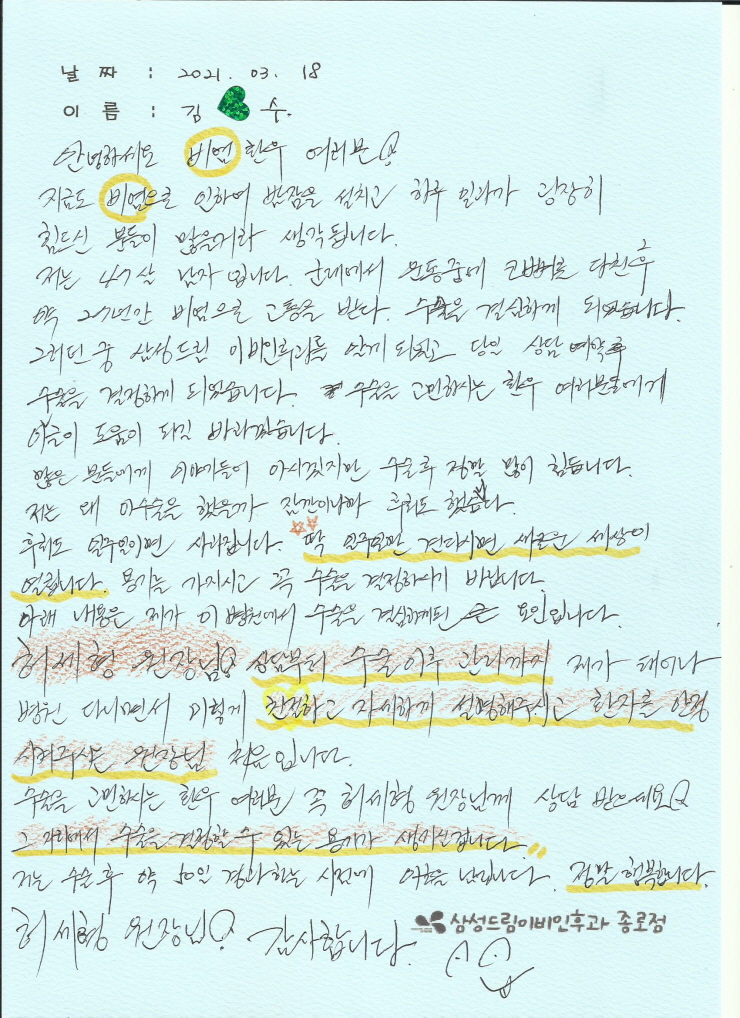 날 짜 : 2021. 03. 18
이 름 : 김 수.
안녕하세요 비염 환우 여러분!
지금도 비염으로 인하여 밤잠을 설치고 하루 일과가 굉장히
힘드신 분들이 많을거라 생각됩니다.
저는 47살 남자 입니다. 군대에서 운동중에 코뼈를 다친후
약 27년간 비염으로 고통을 받다. 수술을 결심하게 되었습니다.
그러던 중 삼성드림 이비인후과를 알게 되었고 당일 상담 예약후
수술을 결정하게 되었습니다. 수술을 고민하시는 환우 여러분들에게
이글이 도움이 되길 바라겠습니다.
많은 분들에게 이야기들어 아시겠지만 수술후 정말 많이 힘듭니다.
저는 왜 이수술을 했을까 잠깐이나마 후회도 했습니다.
후회도 일주일이면 사라집니다. 딱 일주일만 견디시면 새로운 세상이
열립니다. 용기를 가지시고 꼭 수술을 결정하시기 바랍니다.
아래 내용은 제가 이 병원에서 수술을 결심하게된 요인입니다.
허세형 원장님! 상담부터 수술이후 관리까지 제가 태어나
병원 다니면서 이렇게 친절하고 자세하게 설명해주시고 환자를 안정
시켜주시는 원장님 처음입니다.
수술을 고민하시는 환우 여러분 꼭 허세형 원장님께 상담 받으세요!
그 자리에서 수술을 결정할 수 있는 용기가 생기실겁니다.
저는 수술후 약 50일 경과하는 시점에 정말 행복합니다.
허세형 원장님! 감사합니다.
삼성드림이비인후과 종로점